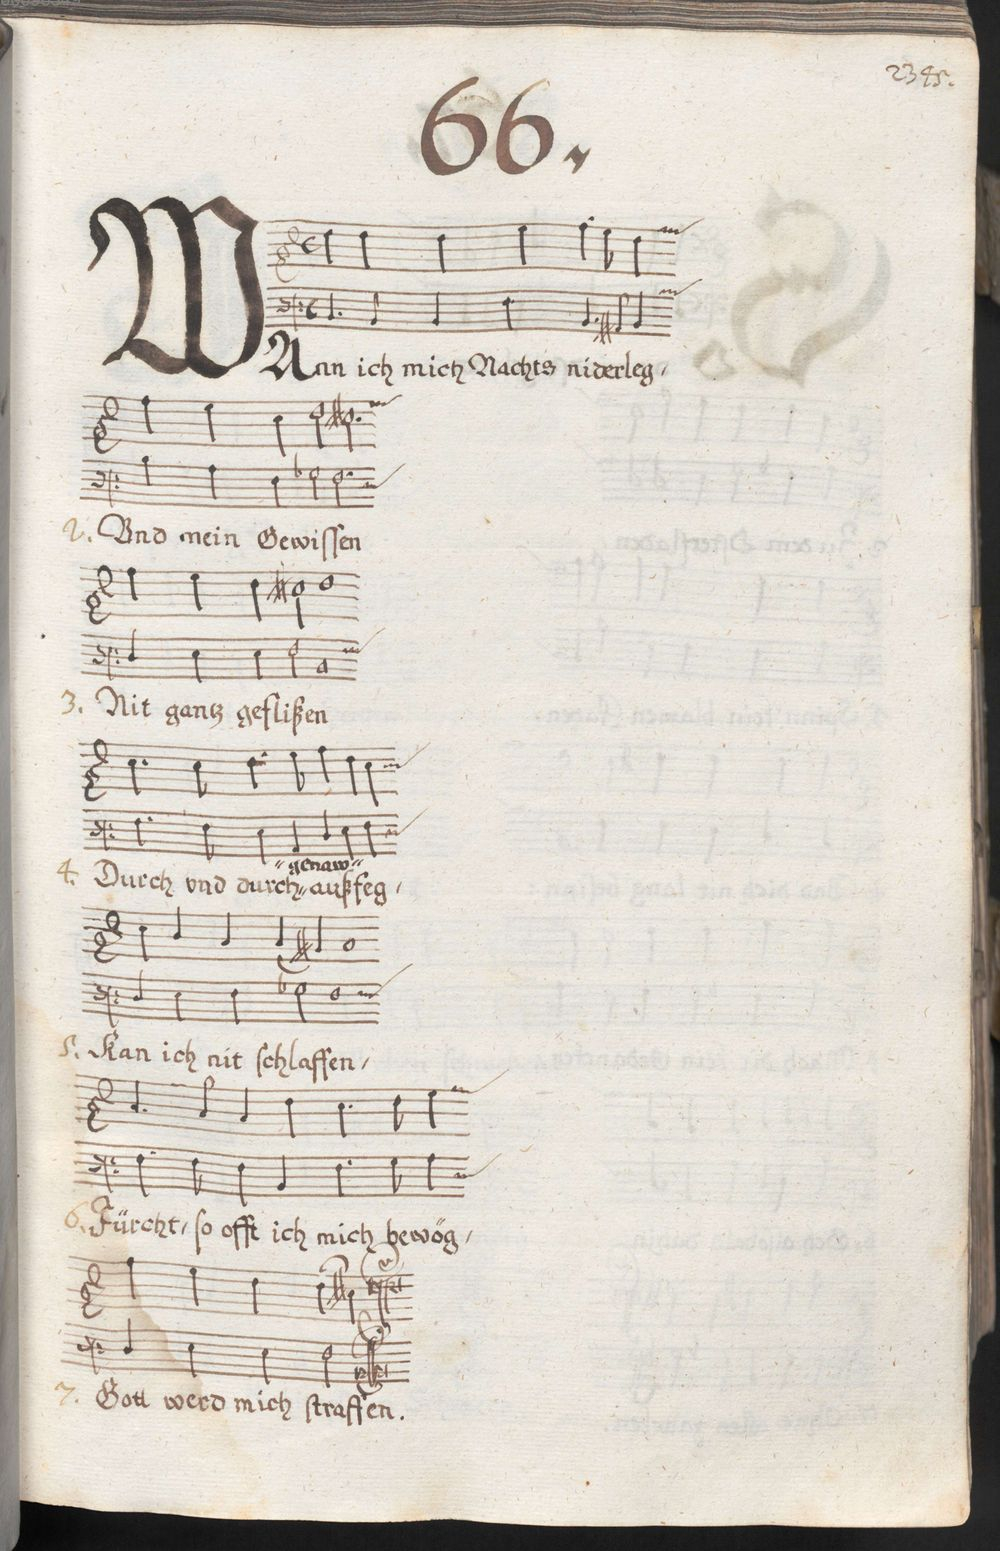 2345.
66.
WAnn ich mich Nachts niderleg,
2. Vnd mein Gewissen
3. Nit gantz geflißen
4. Durch vnd durch außfeg,
genaw
5. Kan ich nit schlaffen,
6. Fürcht, so offt ich mich bewög,
7. Gott werd mich straffen.